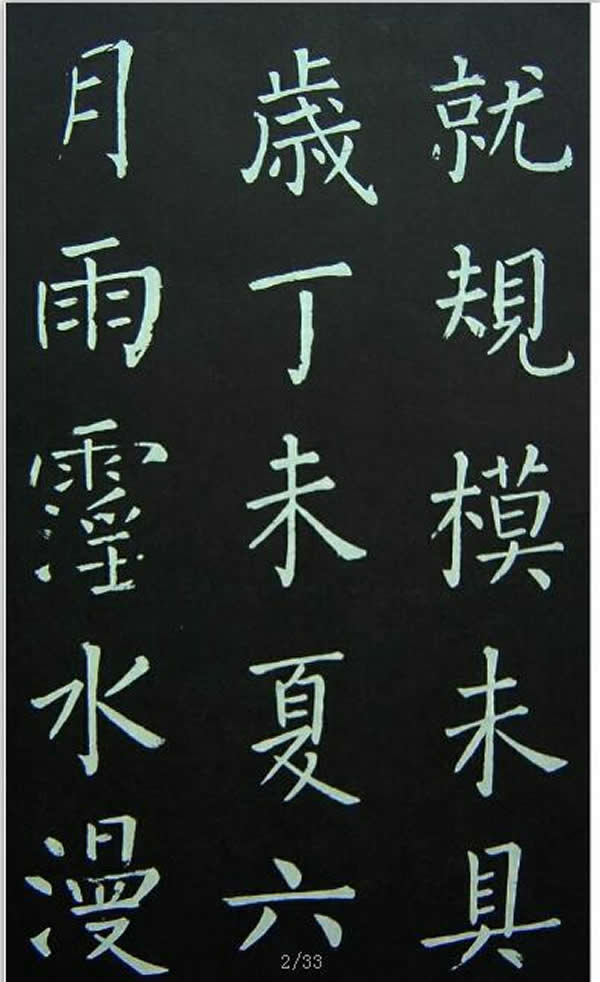 就規模未具
歲丁未夏六
月雨霪水漫
2/33